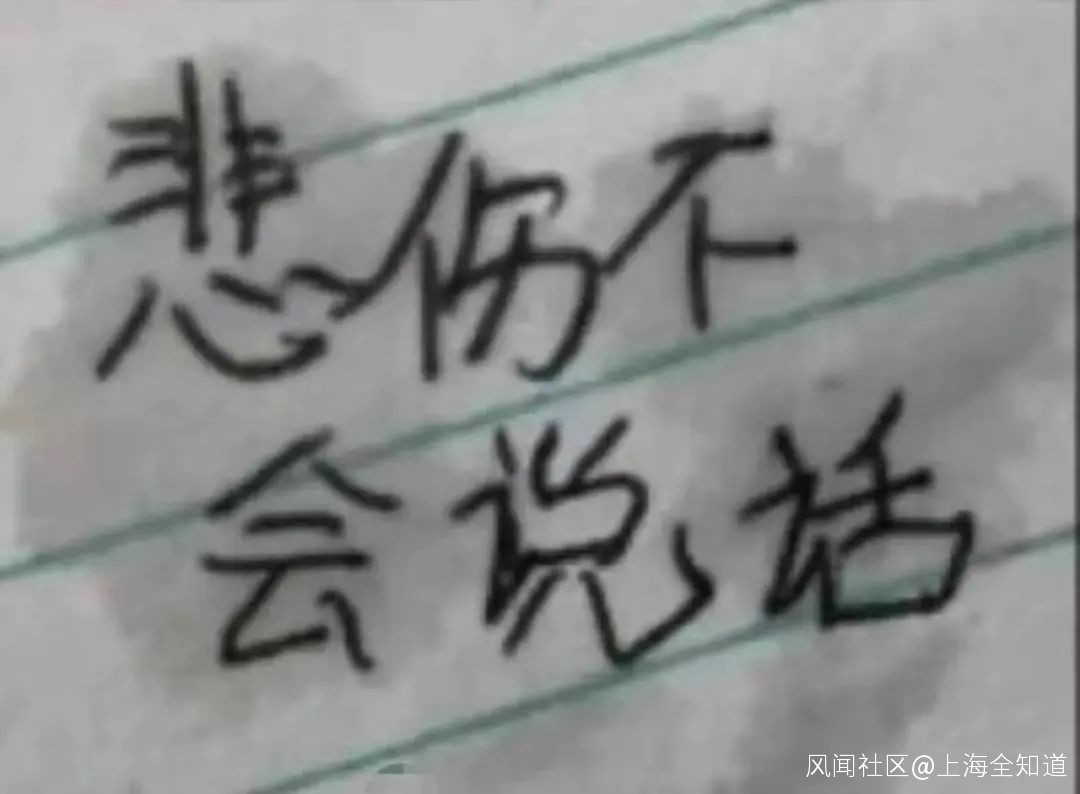 悲伤不
会说话
风闻社区@上海全知道